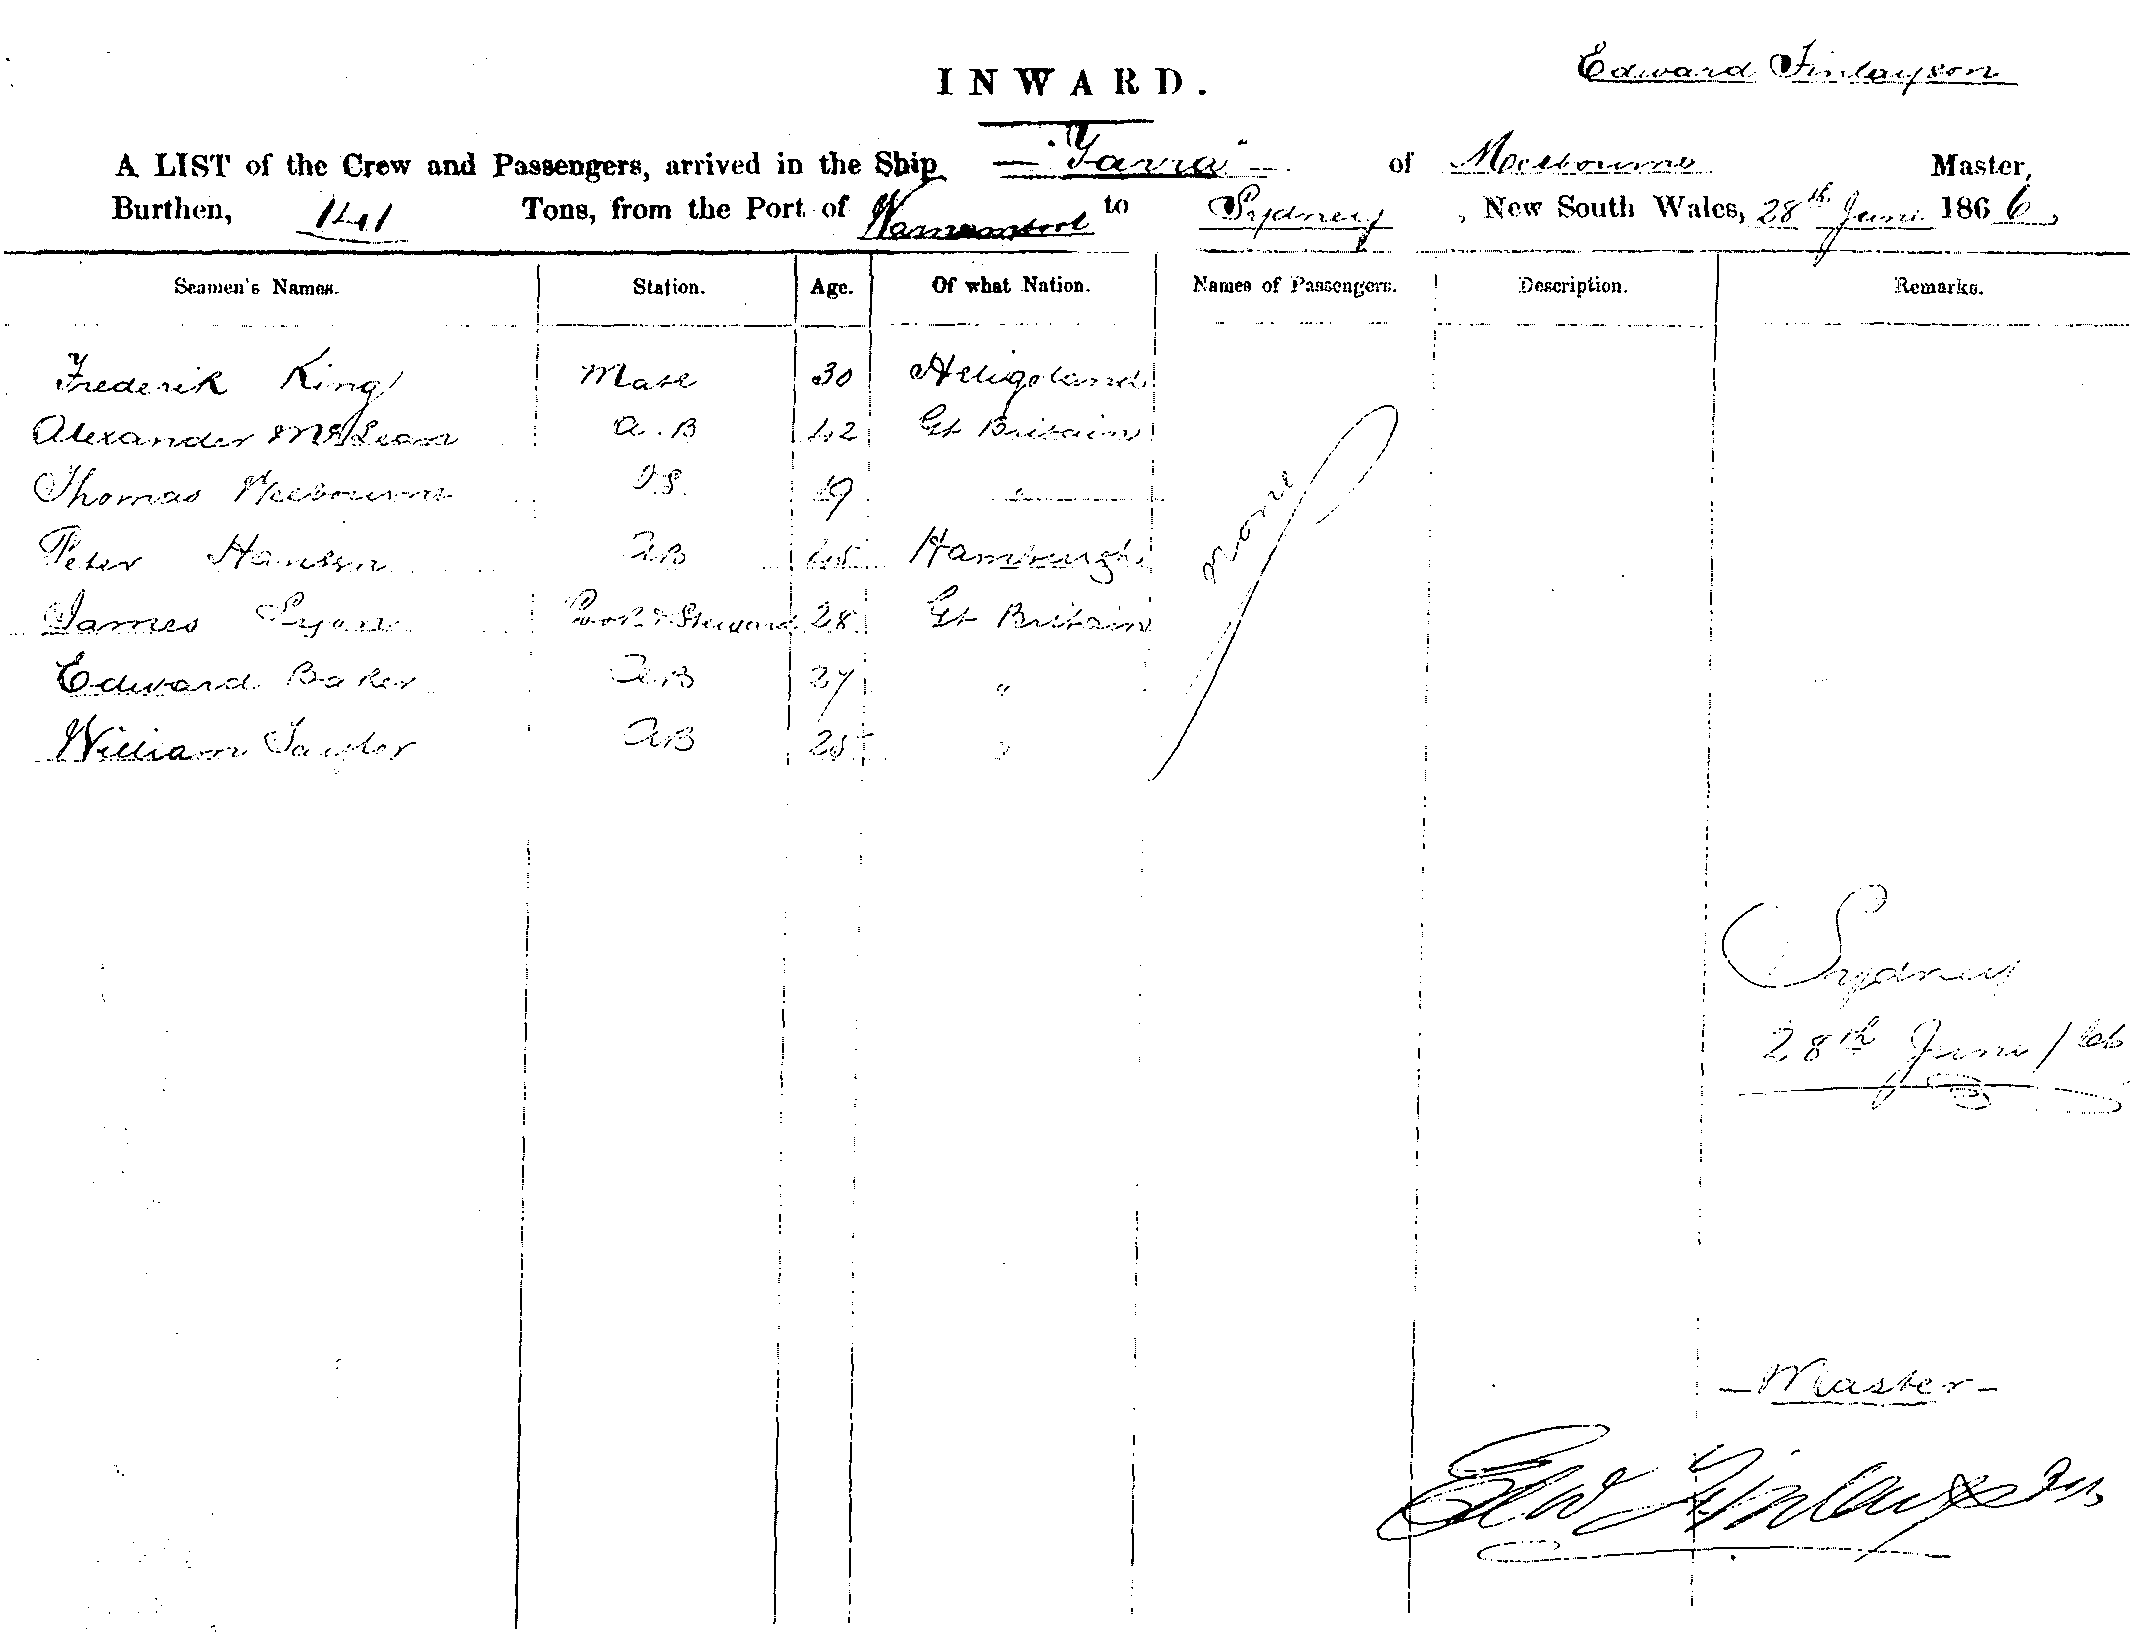 Edward Finlayson
INWARD.
A LIST of the Crew and Passengers, arrived in the Ship — "Yarra" — of Melbourne Master,
Burthen, 141 Tons, from the Port of to Sydney, New South Wales, 28th June 1866,
Seamen's Names. Station. Age. Of what Nation. Names of Passengers. Description. Remarks.
Frederik King Mate 30 Heligoland
Alexander McLean A.B 42 Gt Britain
Thomas O.S. 19 —"—
Peter Hansen AB 45 Hamburgh
James Lyons Cook & Steward 28 Gt Britain
Edward Baker AB 27 "
William Taylor AB 25 "
None
Sydney
28th June / 66
— Master —
Edwd Finlayson